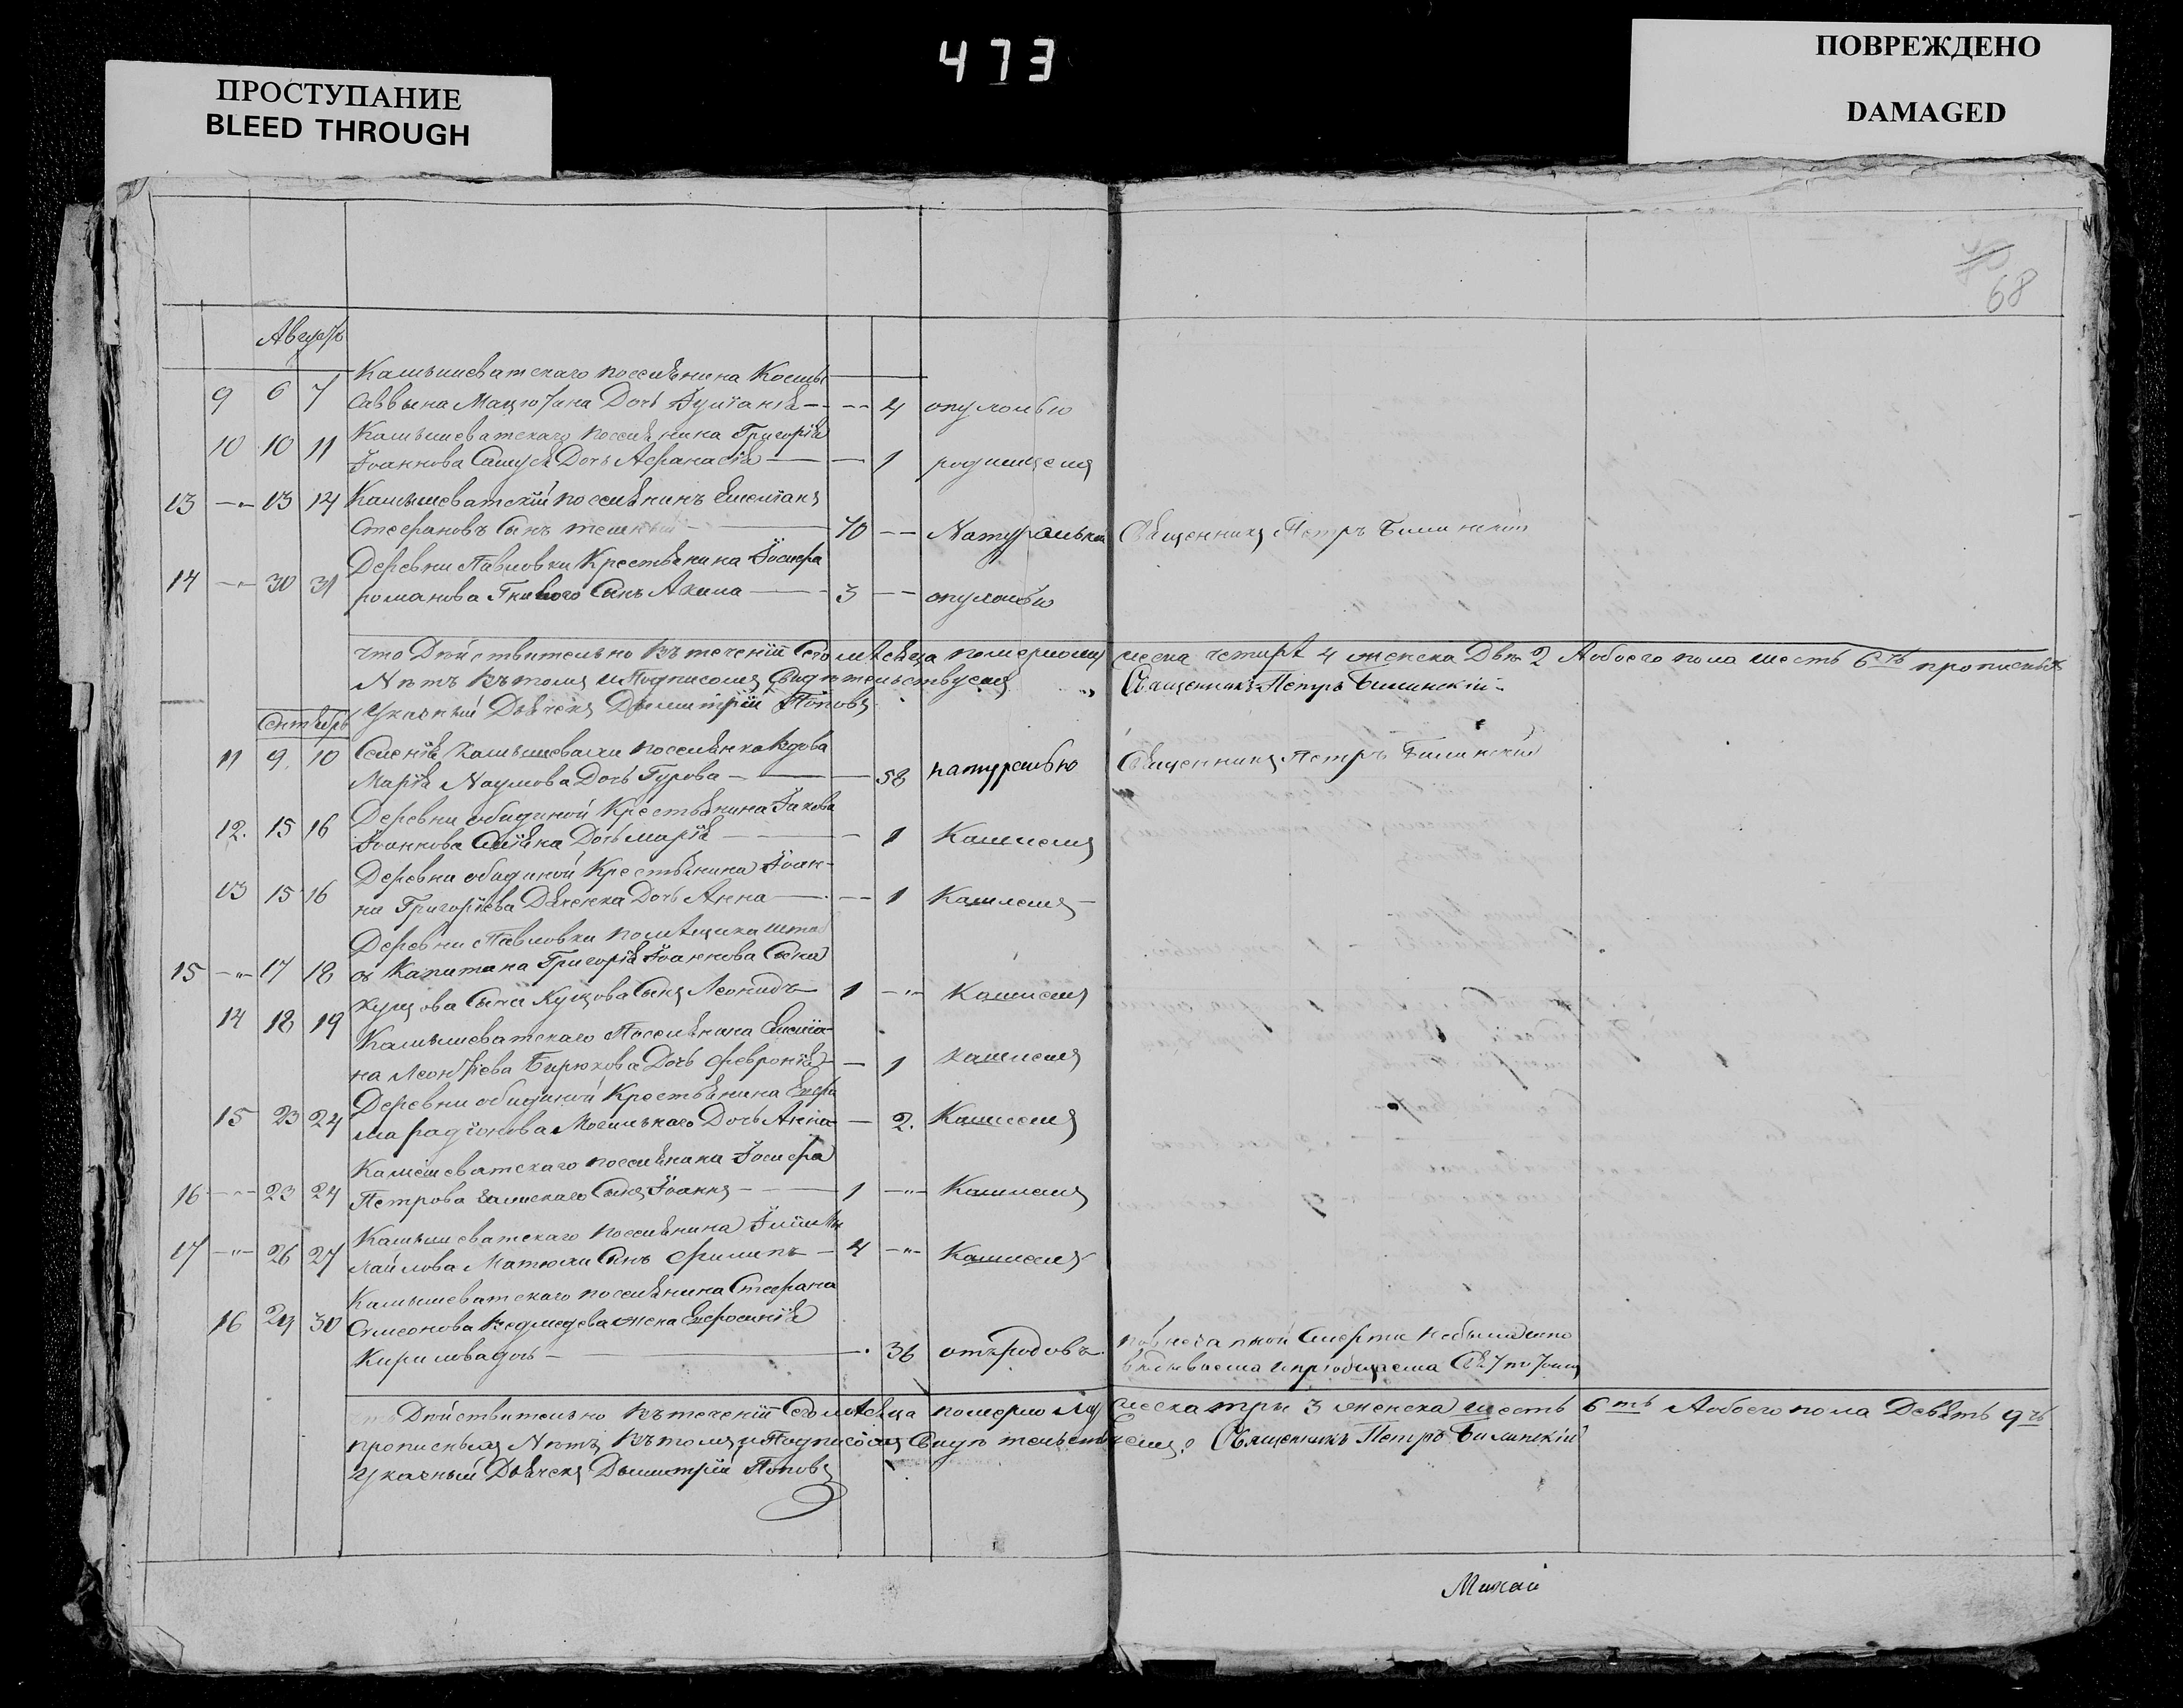 473
ПРОСТУПАНИЕ
BLEED THROUGH
ПОВРЕЖДЕНО
DAMAGED
68
Августъ
Камышеватскаго поселянина Космы
9 6 7 Саввина Дочь Іуліанія — — 4 опухолью
10 10 11 Камышеватскаго поселянина Григорія
Іоаннова Дочь Афанасія — — 1 родимцемъ
13 — 13 14 Камышеватскій поселянинъ Емеліанъ
Стефановъ Сынъ 70 — Натуральною Священникъ Петръ Билинскій
Деревни Павловки Крестьянина Іосифа
14 — 30 31 романова Гниваго Сынъ Акима — 3 — опухолью
что Дѣйствительно Въ теченіи Сего мѣсяца померло муж
меска четыре 4 женска Двѣ 2 Аобоего пола шесть 6ть прописныхъ
Нѣтъ Въ томъ и Подписомъ Свидѣтельствуемъ Священникъ Петръ Билинскій
Указный Дьячекъ Дымитрій Поповъ
Сентябрь
11 9 10 Селенія Камышевахи поселянка Вдова
Марія Наумова Дочь Гурова — — 58 натуральною Священникъ Петръ Билинскій
Деревни обидиной Крестьянина Іакова
12. 15 16 Іоаннова Дочь марія — — 1 Кашлемъ
Деревни обидиной Крестьянина Іоан-
13 15 16 на Григоріева Дяченка Дочь Анна — — 1 Кашлемъ
Деревни Павловки помѣщика шта
15 — 17 18 бъ Капитана Григорія Іоаннова Сына
Сынъ Леонидъ 1 — Кашлемъ
14 18 19 Камышеватскаго Поселянина Емеліа-
на Леонтіева Бирюкова Дочь Февронія — 1 кашлемъ
Деревни обидиной Крестьянина Ефи
15 23 24 ма радіонова Могильнаго Дочь Анна — 2. Кашлемъ
Камышеватскаго поселянина Іосифа
16 — 23 24 Петрова Сынъ Іоаннъ — 1 — Кашлемъ
Камышеватскаго поселянина
17 — 26 27 Сынъ Филипъ — 4 — Кашлемъ
Камышеватскаго поселянина Стефана
16 29 30 Симеонова Ведмедева жена Ефросинія
Кирилова дочь — 36 отъ родовъ
по внезапной Смерти небыла
исповѣдываема ипріобщаема Св:
что Дѣйствительно Въ теченіи Сего мѣсяца померло Муж
меска три 3 женска шесть 6ть Аобоего пола Девять 9ть
прописныхъ Нѣтъ Въ томъ и Подписомъ Свидѣтельствуемъ Священникъ Петръ Билинскій
Указный Дьячекъ Дымитрій Поповъ